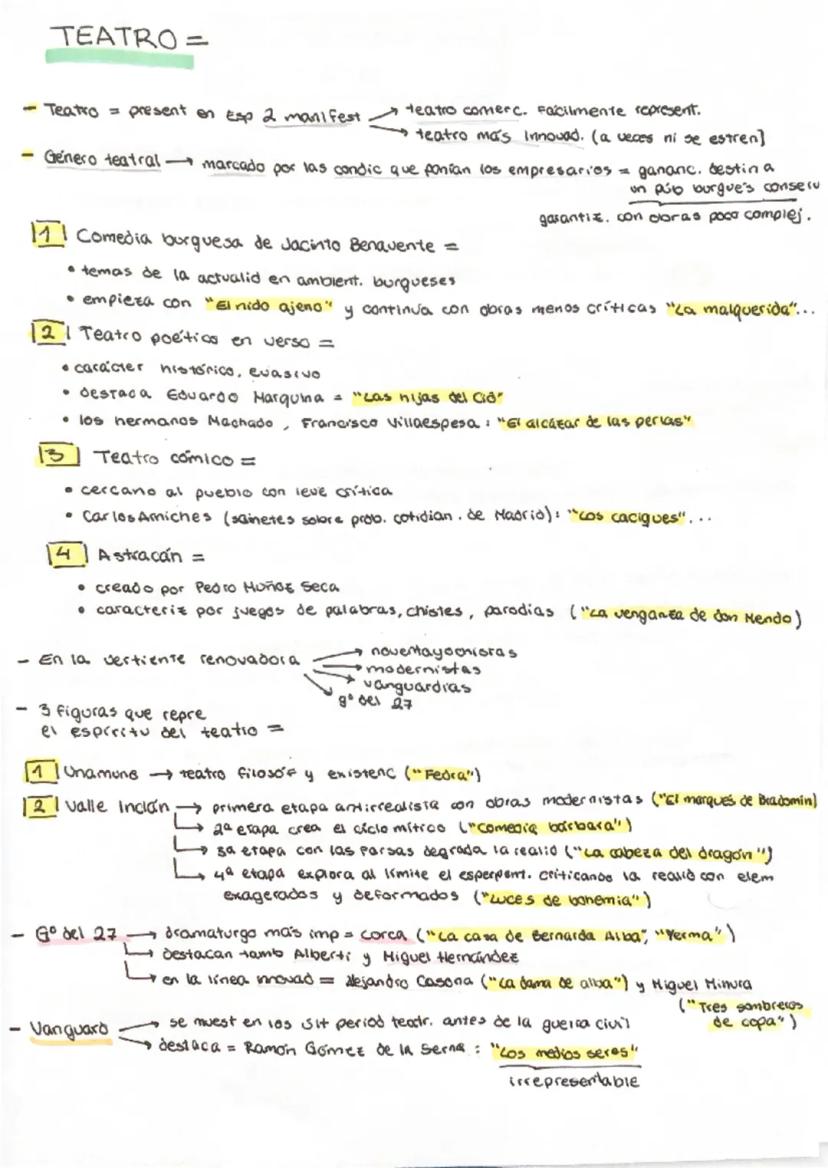 TEATRO =
- Teatro = present en Esp 2 manifest → teatro comerc. Facilmente represent.
→ teatro más innovad. (a veces ni se estren]
- Género teatral → marcado por las condic que ponían los empresarios = gananc. destina
un púb burgués conserv
garantiz. con obras poco complej.
1 Comedia burguesa de Jacinto Benavente =
• temas de la actualid en ambient. burgueses
• empieza con "El nido ajeno" y continúa con obras menos críticas "La malquerida"...
2 Teatro poético en verso =
• carácter histórico, evasivo
• destaca Eduardo Marquina = "Las hijas del Cid"
• los hermanos Machado, Francisco Villaespesa : "El alcázar de las perlas"
3 Teatro cómico =
• cercano al pueblo con leve crítica
• Carlos Arniches (sainetes sobre prob. cotidian. de Madrid): "Los caciques"...
4 Astracán =
• creado por Pedro Muñoz Seca
• caracteriz por juegos de palabras, chistes, parodias ("La venganza de don Mendo)
- En la vertiente renovadora → noventayochistas
→ modernistas
→ vanguardias
gº del 27
- 3 figuras que repre
el espíritu del teatro =
1 Unamuno → teatro filosóf y existenc ("Fedra")
2 Valle Inclán → primera etapa antirrealista con obras modernistas ("El marqués de Bradomín)
→ 2ª etapa crea el ciclo mítico ("Comedia bárbara")
→ 3ª etapa con las farsas degrada la realid ("La cabeza del dragón")
→ 4ª etapa explora al límite el esperpent. criticando la realid con elem
exagerados y deformados ("Luces de bohemia")
- Gº del 27 → dramaturgo más imp = Lorca ("La casa de Bernarda Alba", "Yerma")
→ destacan tamb Alberti y Miguel Hernández
→ en la línea innovad = Alejandro Casona ("La dama de alba") y Miguel Mihura
("Tres sombreros
de copa")
- Vanguard → se muest en los últ period teatr. antes de la guerra civil
→ destaca = Ramón Gómez de la Serna : "Los medios seres"
irrepresentable